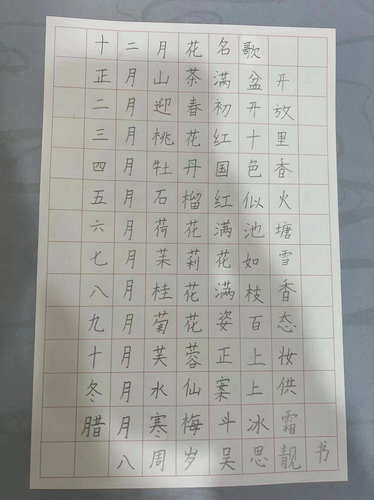 十二月花名歌
正月山茶满盆开
二月迎春初开放
三月桃花红十里
四月牡丹国色香
五月石榴红似火
六月荷花满池塘
七月茉莉花如雪
八月桂花满枝香
九月菊花姿百态
十月芙蓉正上妆
冬月水仙案上供
腊月寒梅斗冰霜
八周岁吴思靓书